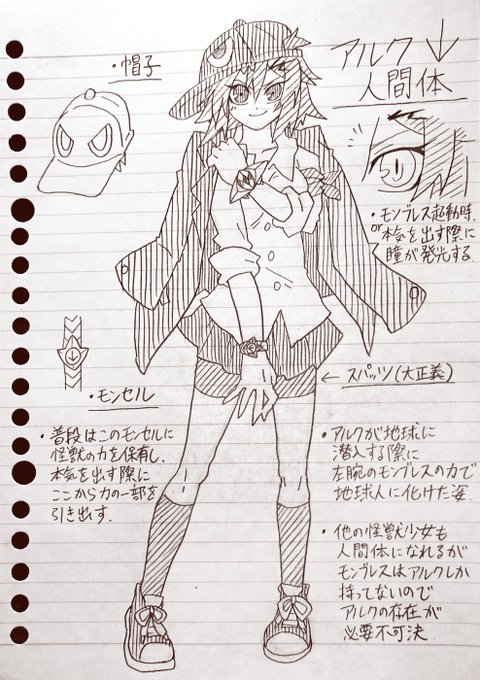 アルク↓
人間体
・帽子
・モンブレス起動時
or
本気を出す際に
瞳が発光する
← スパッツ(大正義)
・モンセル
・普段はこのモンセルに
怪獣の力を保有し、
本気を出す際に
ここから力の一部を
引き出す.
・アルクが地球に
潜入する際に
左腕のモンブレスの力で
地球人に化けた姿
・他の怪獣少女も
人間体になれるが
モンブレスはアルクしか
持ってないので
アルクの存在が
必要不可決